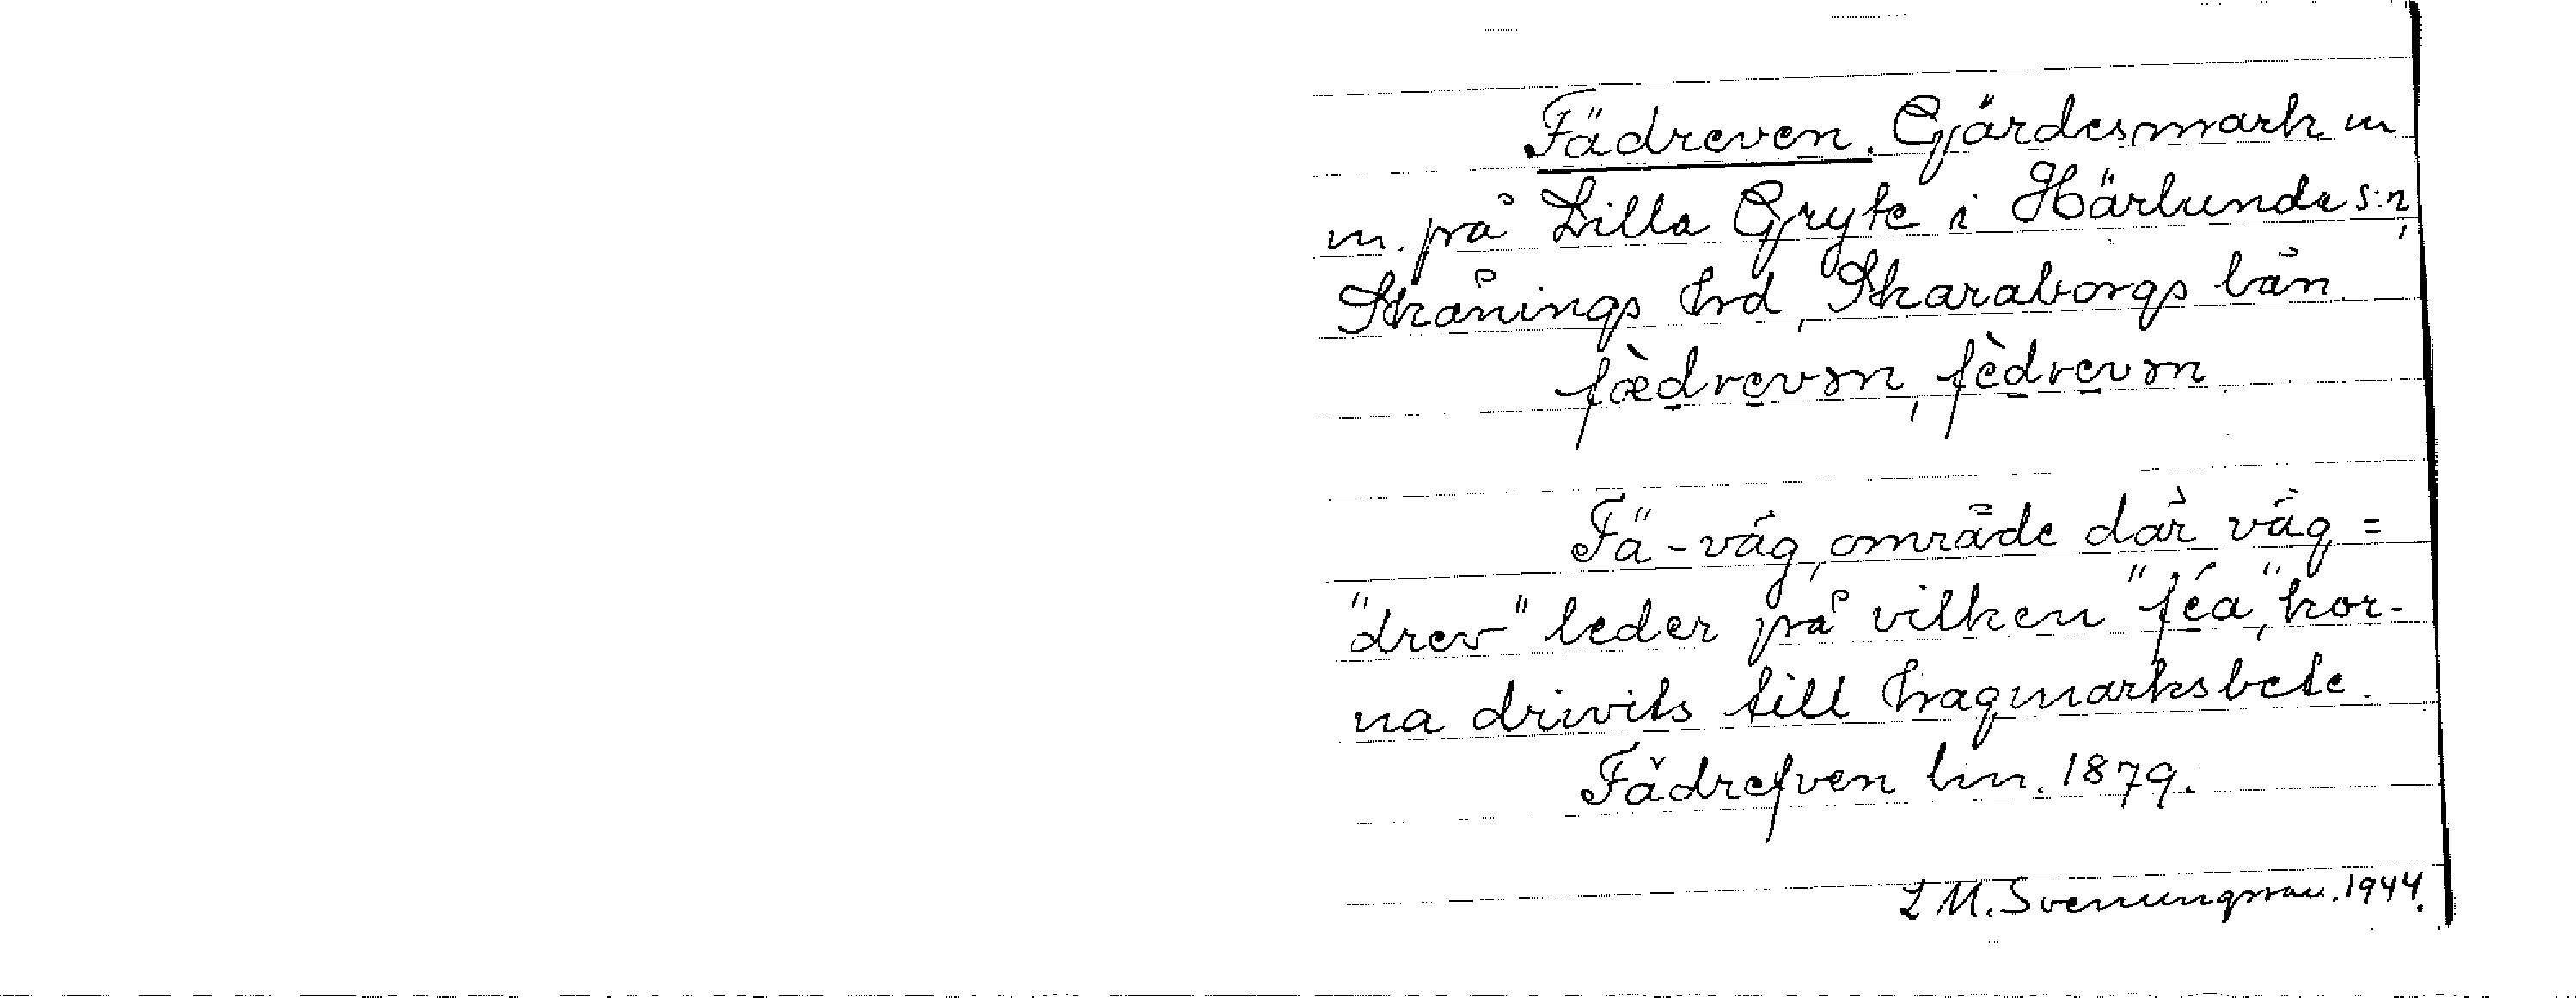 Fädreven. Gärdesmark m
m. på Lilla Gryte i Härlunda s:n,
Skånings hrd, Skaraborgs län
fæ̀drevən, fèdrevən
Fä-väg, område där väg =
"drev" leder på vilken "féa", kor-
na drivits till hagmarksbete.
Fädrefven lm. 1879.
L M. Svenungsson. 1944.